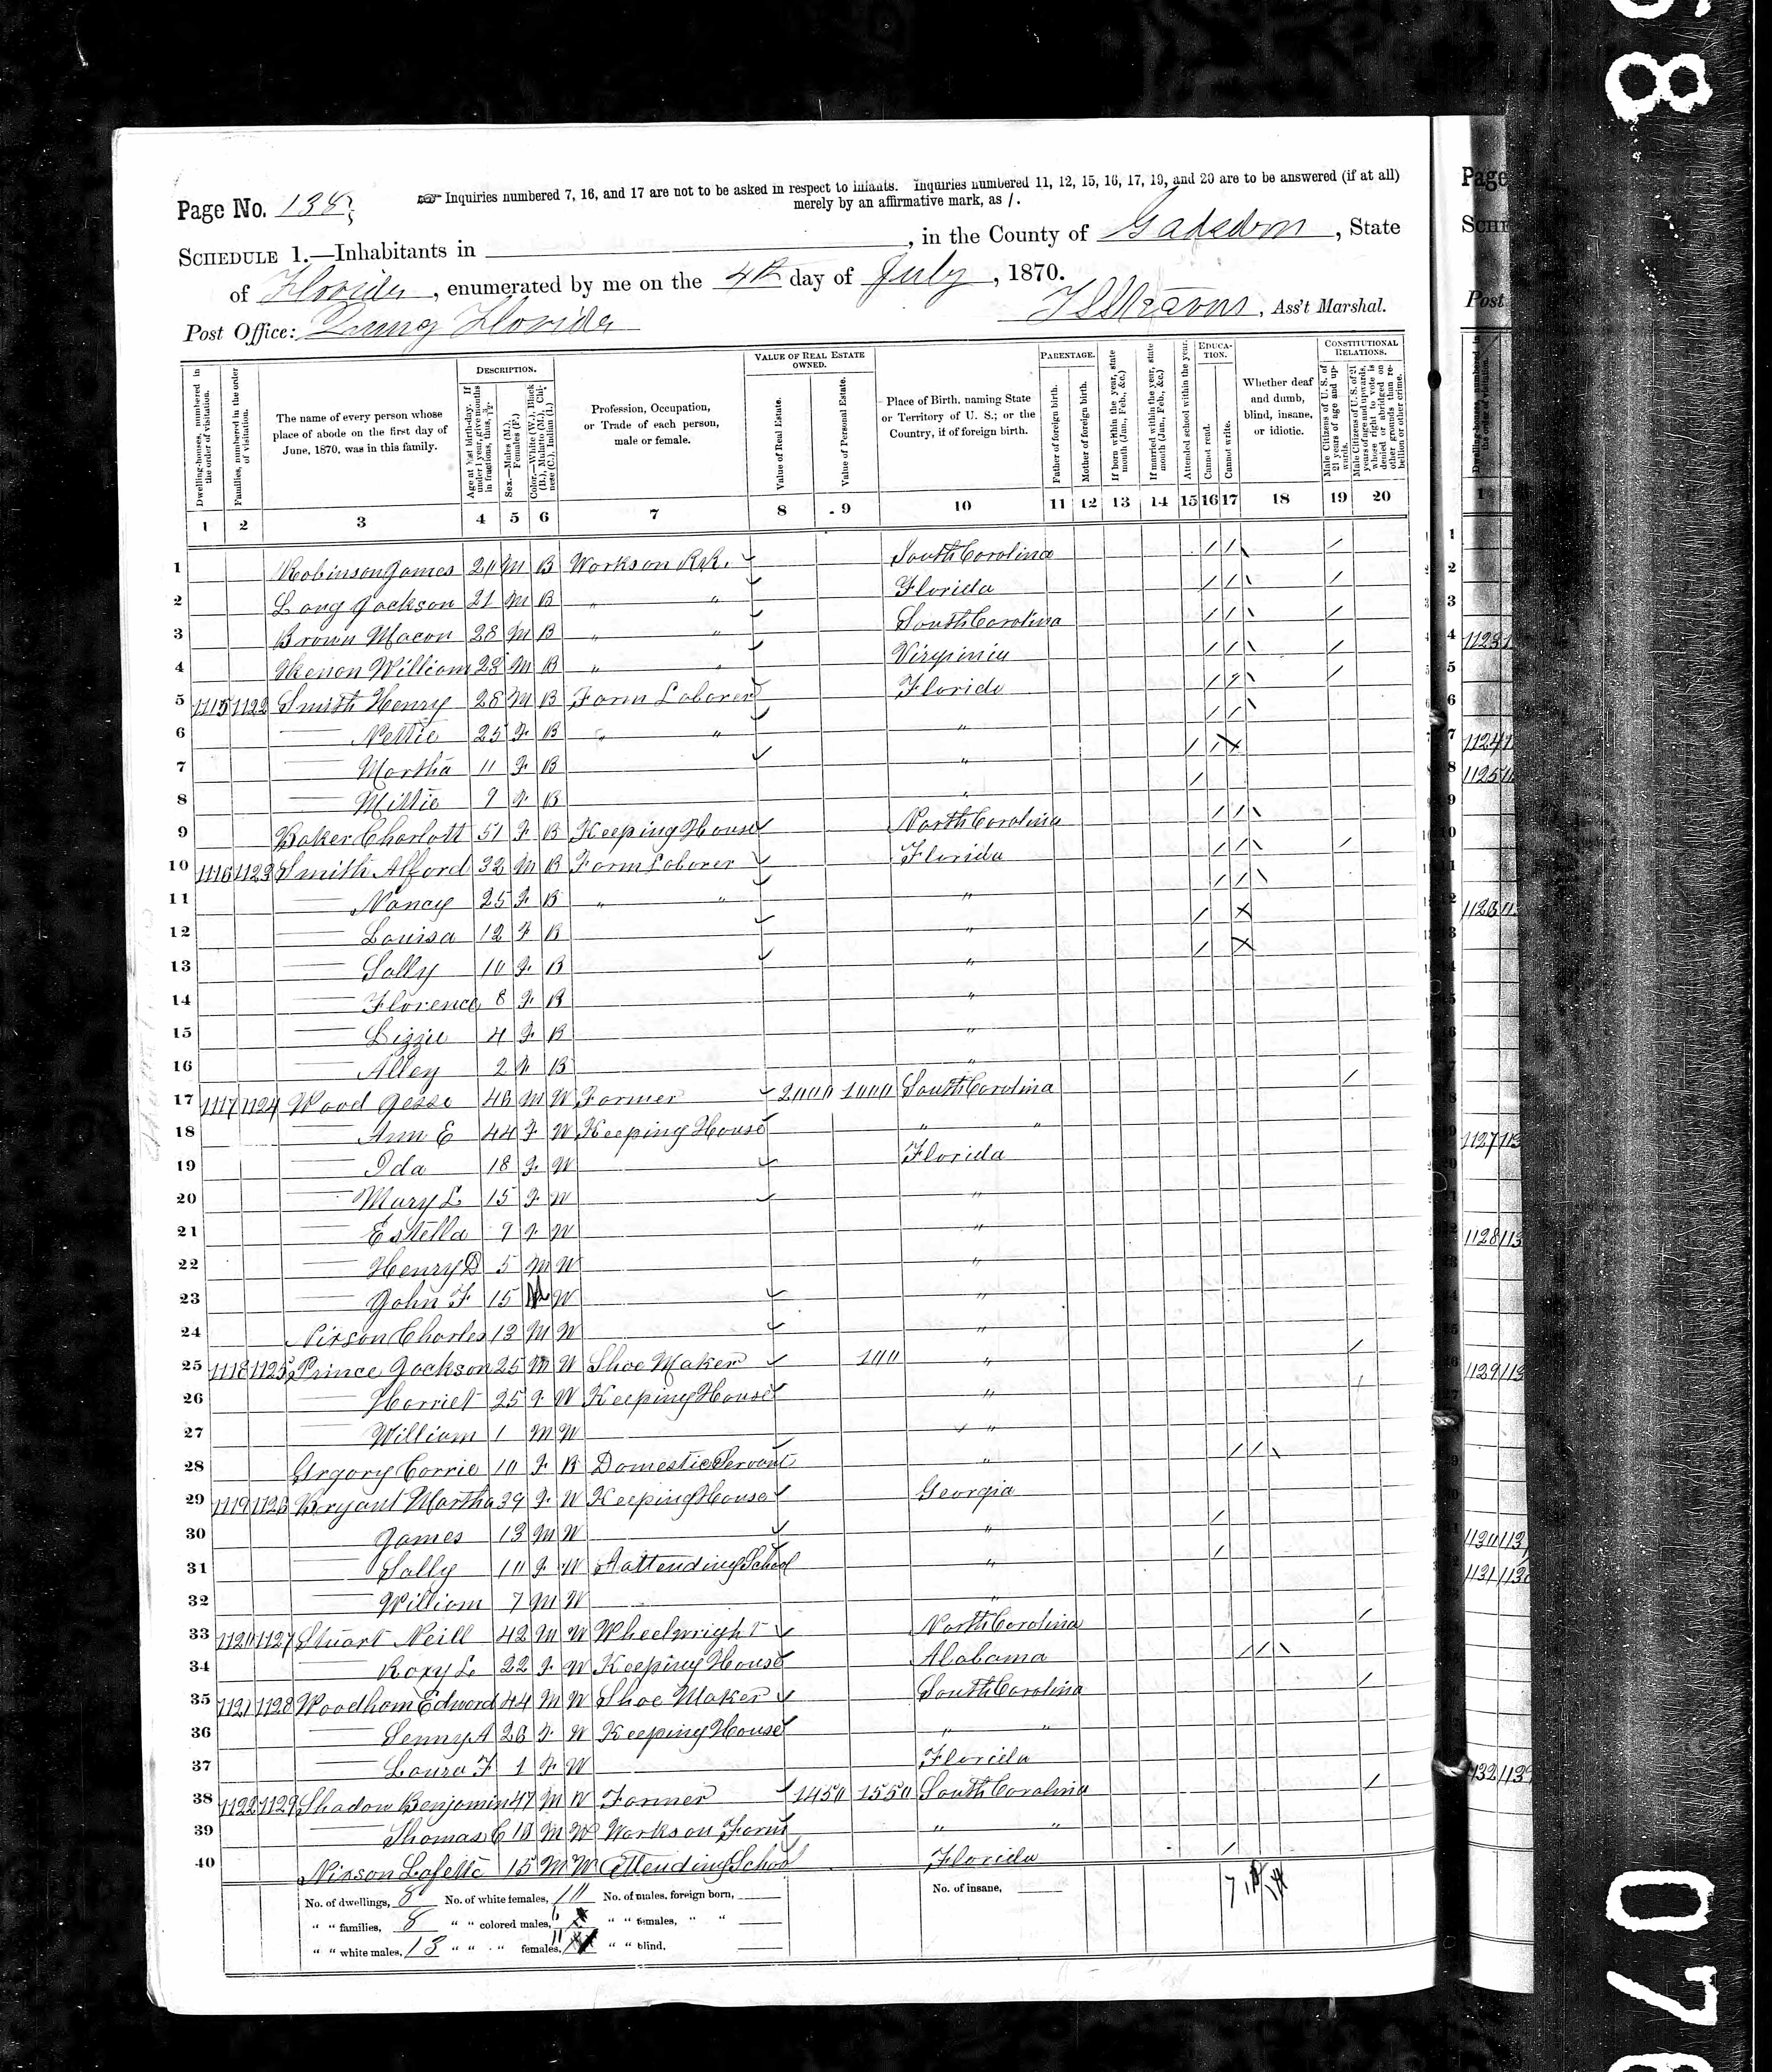 Page No. 138
Inquiries numbered 7, 16, and 17 are not to be asked in respect to infants. Inquiries numbered 11, 12, 15, 16, 17, 19, and 20 are to be answered (if at all)
merely by an affirmative mark, as /.
SCHEDULE 1.—Inhabitants in , in the County of Gadsden, State
of Florida, enumerated by me on the 4th day of July, 1870.
Post Office: Florida
Ass't Marshal.
DESCRIPTION.
VALUE OF REAL ESTATE OWNED.
PARENTAGE.
EDUCATION.
CONSTITUTIONAL RELATIONS.
Dwelling-houses, numbered in the order of visitation.
Families, numbered in the order of visitation.
The name of every person whose place of abode on the first day of June, 1870, was in this family.
Age at last birth-day. If under 1 year, give months in fractions, thus, 3/12.
Sex.—Males (M.), Females (F.)
Color.—White (W.), Black (B.), Mulatto (M.), Chinese (C.), Indian (I.)
Profession, Occupation, or Trade of each person, male or female.
Value of Real Estate.
Value of Personal Estate.
Place of Birth, naming State or Territory of U. S.; or the Country, if of foreign birth.
Father of foreign birth.
Mother of foreign birth.
If born within the year, state month (Jan., Feb., &c.)
If married within the year, state month (Jan., Feb., &c.)
Attended school within the year.
Cannot read.
Cannot write.
Whether deaf and dumb, blind, insane, or idiotic.
Male Citizens of U. S. of 21 years of age and upwards.
Male Citizens of U. S. of 21 years of age and upwards, whose right to vote is denied or abridged on other grounds than rebellion or other crime.
1 2 3 4 5 6 7 8 9 10 11 12 13 14 15 16 17 18 19 20
1 Robinson James M B Works on R.R. South Carolina / / /
2 Long Jackson 21 M B " " Florida / / /
3 Brown Macon 28 M B " " South Carolina / / /
4 William M B " " Virginia / / /
5 1115 1122 Smith Henry 28 M B Farm Laborer Florida / / /
6 Nettie 25 F B " " " / /
7 Martha 11 F B " / /
8 Millie 9 F B " /
9 Baker Charlott 51 F B Keeping House North Carolina / /
10 1116 1123 Smith Alford 32 M B Farm Laborer Florida / / /
11 Nancy 25 F B " " " / /
12 Louisa 12 F B " / X
13 Sally 10 F B " / X
14 Florence 6 F B "
15 Lizzie 4 F B "
16 Alley 2 B "
17 1117 1124 Wood Jesse 46 M W Farmer 2000 1000 South Carolina /
18 Ann E 44 F W Keeping House " "
19 Ida 18 F W Florida
20 Mary L 15 F W "
21 Estella 9 F W "
22 Henry D 5 M W "
23 John F 15 M W "
24 Nixson Charles 13 M W "
25 1118 1125 Prince Jackson 25 M W Shoe Maker 100 " /
26 Harriet 25 F W Keeping House " /
27 William 1 M W "
28 Corrie 10 F B Domestic Servant " / /
29 1119 1126 Bryant Martha 39 F W Keeping House Georgia
30 James 13 M W " /
31 Sally 10 F W Aattending School " /
32 William 7 M W "
33 1120 1127 Stuart Neill 42 M W Wheelwright North Carolina /
34 Roxy L 22 F W Keeping House Alabama / /
35 1121 1128 Woodham Edward 44 M W Shoe Maker South Carolina /
36 A 26 F W Keeping House " "
37 Laura F 1 F W Florida
38 1122 1129 Shadow Benjamin 47 M W Farmer 1450 1550 South Carolina /
39 Thomas C M W Works on Farm " "
40 Nixson Lafette 15 M W Attending School Florida /
No. of dwellings, 8 No. of white females, 10 No. of males, foreign born, No. of insane,
" " families, 8 " " colored males, " " females, " "
" " white males, 13 " " " females, 11 " " blind,
Page
Post